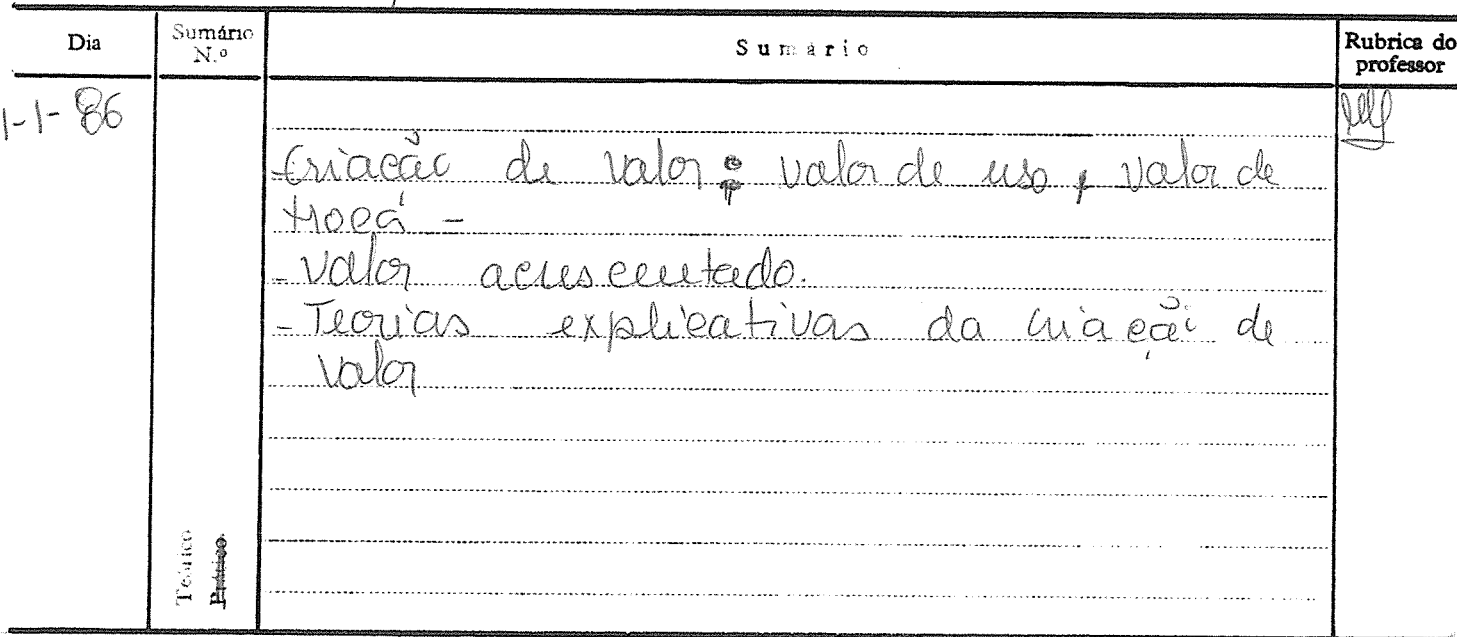 Dia Sumário N.º Sumário Rubrica do professor
1-1-86
Criação de valor; valor de uso, valor de
troca -
- Valor acrescentado.
- Teorias explicativas da criação de
valor
Teórico
Prático